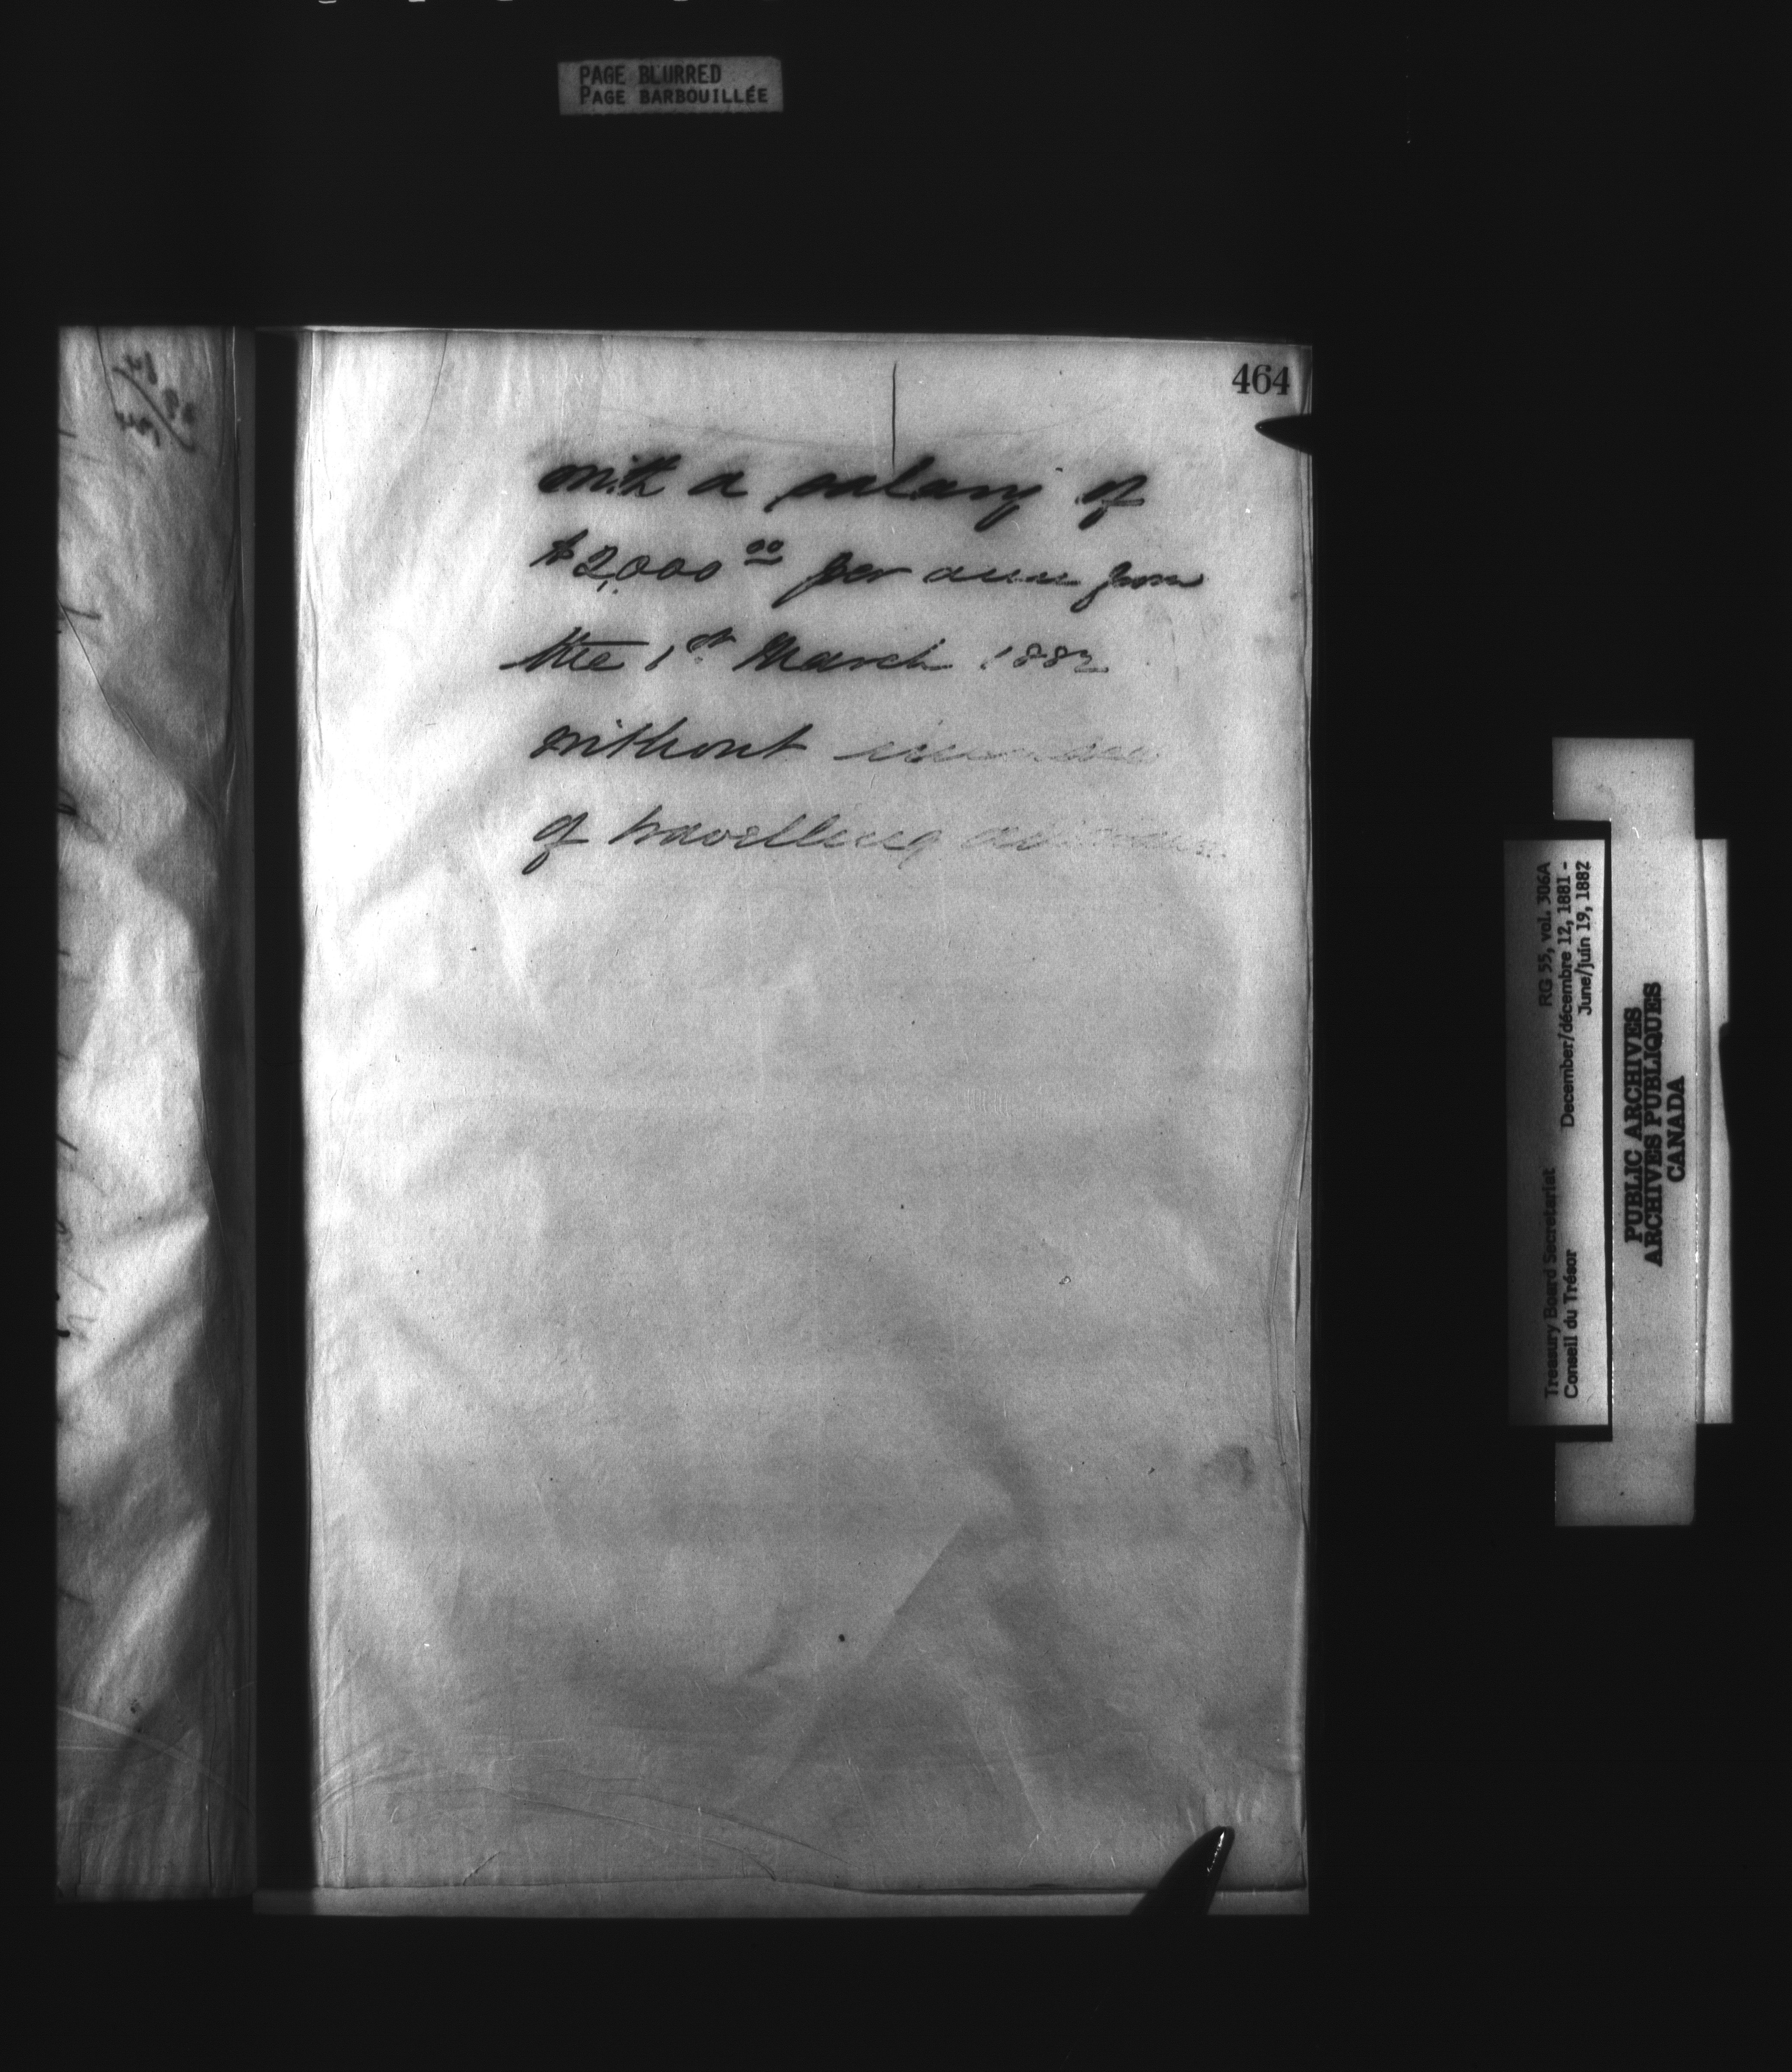 PAGE BLURRED
PAGE BARBOUILLÉE
464
with a salary of
$2,000 00 per ann from
the 1st March 1882
without increase
of travelling
RG 55, vol. 306A
December/décembre 12, 1881 -
June/juin 19, 1882
Treasury Board Secretariat
Conseil du Trésor
PUBLIC ARCHIVES
ARCHIVES PUBLIQUES
CANADA